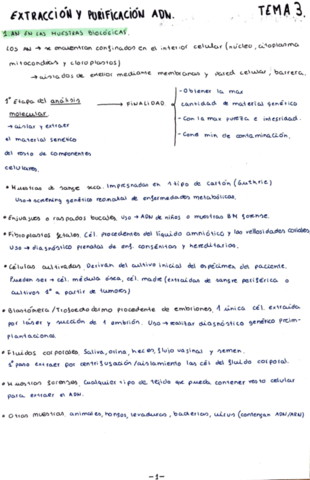 EXTRACCIÓN Y PURIFICACIÓN ADN. TEMA 3.
1. AN EN LAS MUESTRAS BIOLÓGICAS.
LOS AN → se encuentran confinados en el interior celular (núcleo, citoplasma
mitocondrias y cloroplastos)
→ aislados de enterior mediante membranas y pared celular, barrera.
1ª Etapa del análisis
molecular.
→ aislar y extraer
el material genético
del resto de componentes
celulares.
→ FINALIDAD
- Obtener la max
cantidad de material genético
- Con la max pureza e integridad.
- Cond min de contaminación.
• Muestras de sangre seca. Impregnadas en 1 tipo de cartón (Guthrie)
Uso → screening genético neonatal de enfermedades metabólicas.
• Enjuagues o raspados bucales, Uso → ADN de niños o muestras BM forense.
• Fibroblastos fetales. Cél. procedentes del líquido amniótico y las vellosidades coriales
Uso → diagnóstico prenatal de enf. congénitas y hereditarias.
• Células cultivadas Derivan del cultivo inicial del espécimen del paciente.
Pueden ser → cél. médula ósea, cél. madre (extraídas de sangre periférica o
cultivos 1º a partir de tumores)
• Blastómera / Trofoectodermo procedente de embriones. 1 única cél. extraída
por láser y succión de 1 embrión. Uso → realizar diagnóstico genético preim-
plantacional
• Fluidos corporales, Saliva, orina, heces, flujo vaginal y semen.
1º paso extraer por centrifugación/aislamiento las cél del fluido corporal.
• Muestras forenses, cualquier tipo de tejido que pueda contener resto celular
para extraer el ADN.
• Otras muestras, animales, hongos, levaduras, bacterias, virus (contengan ADN/ARN)
-1-